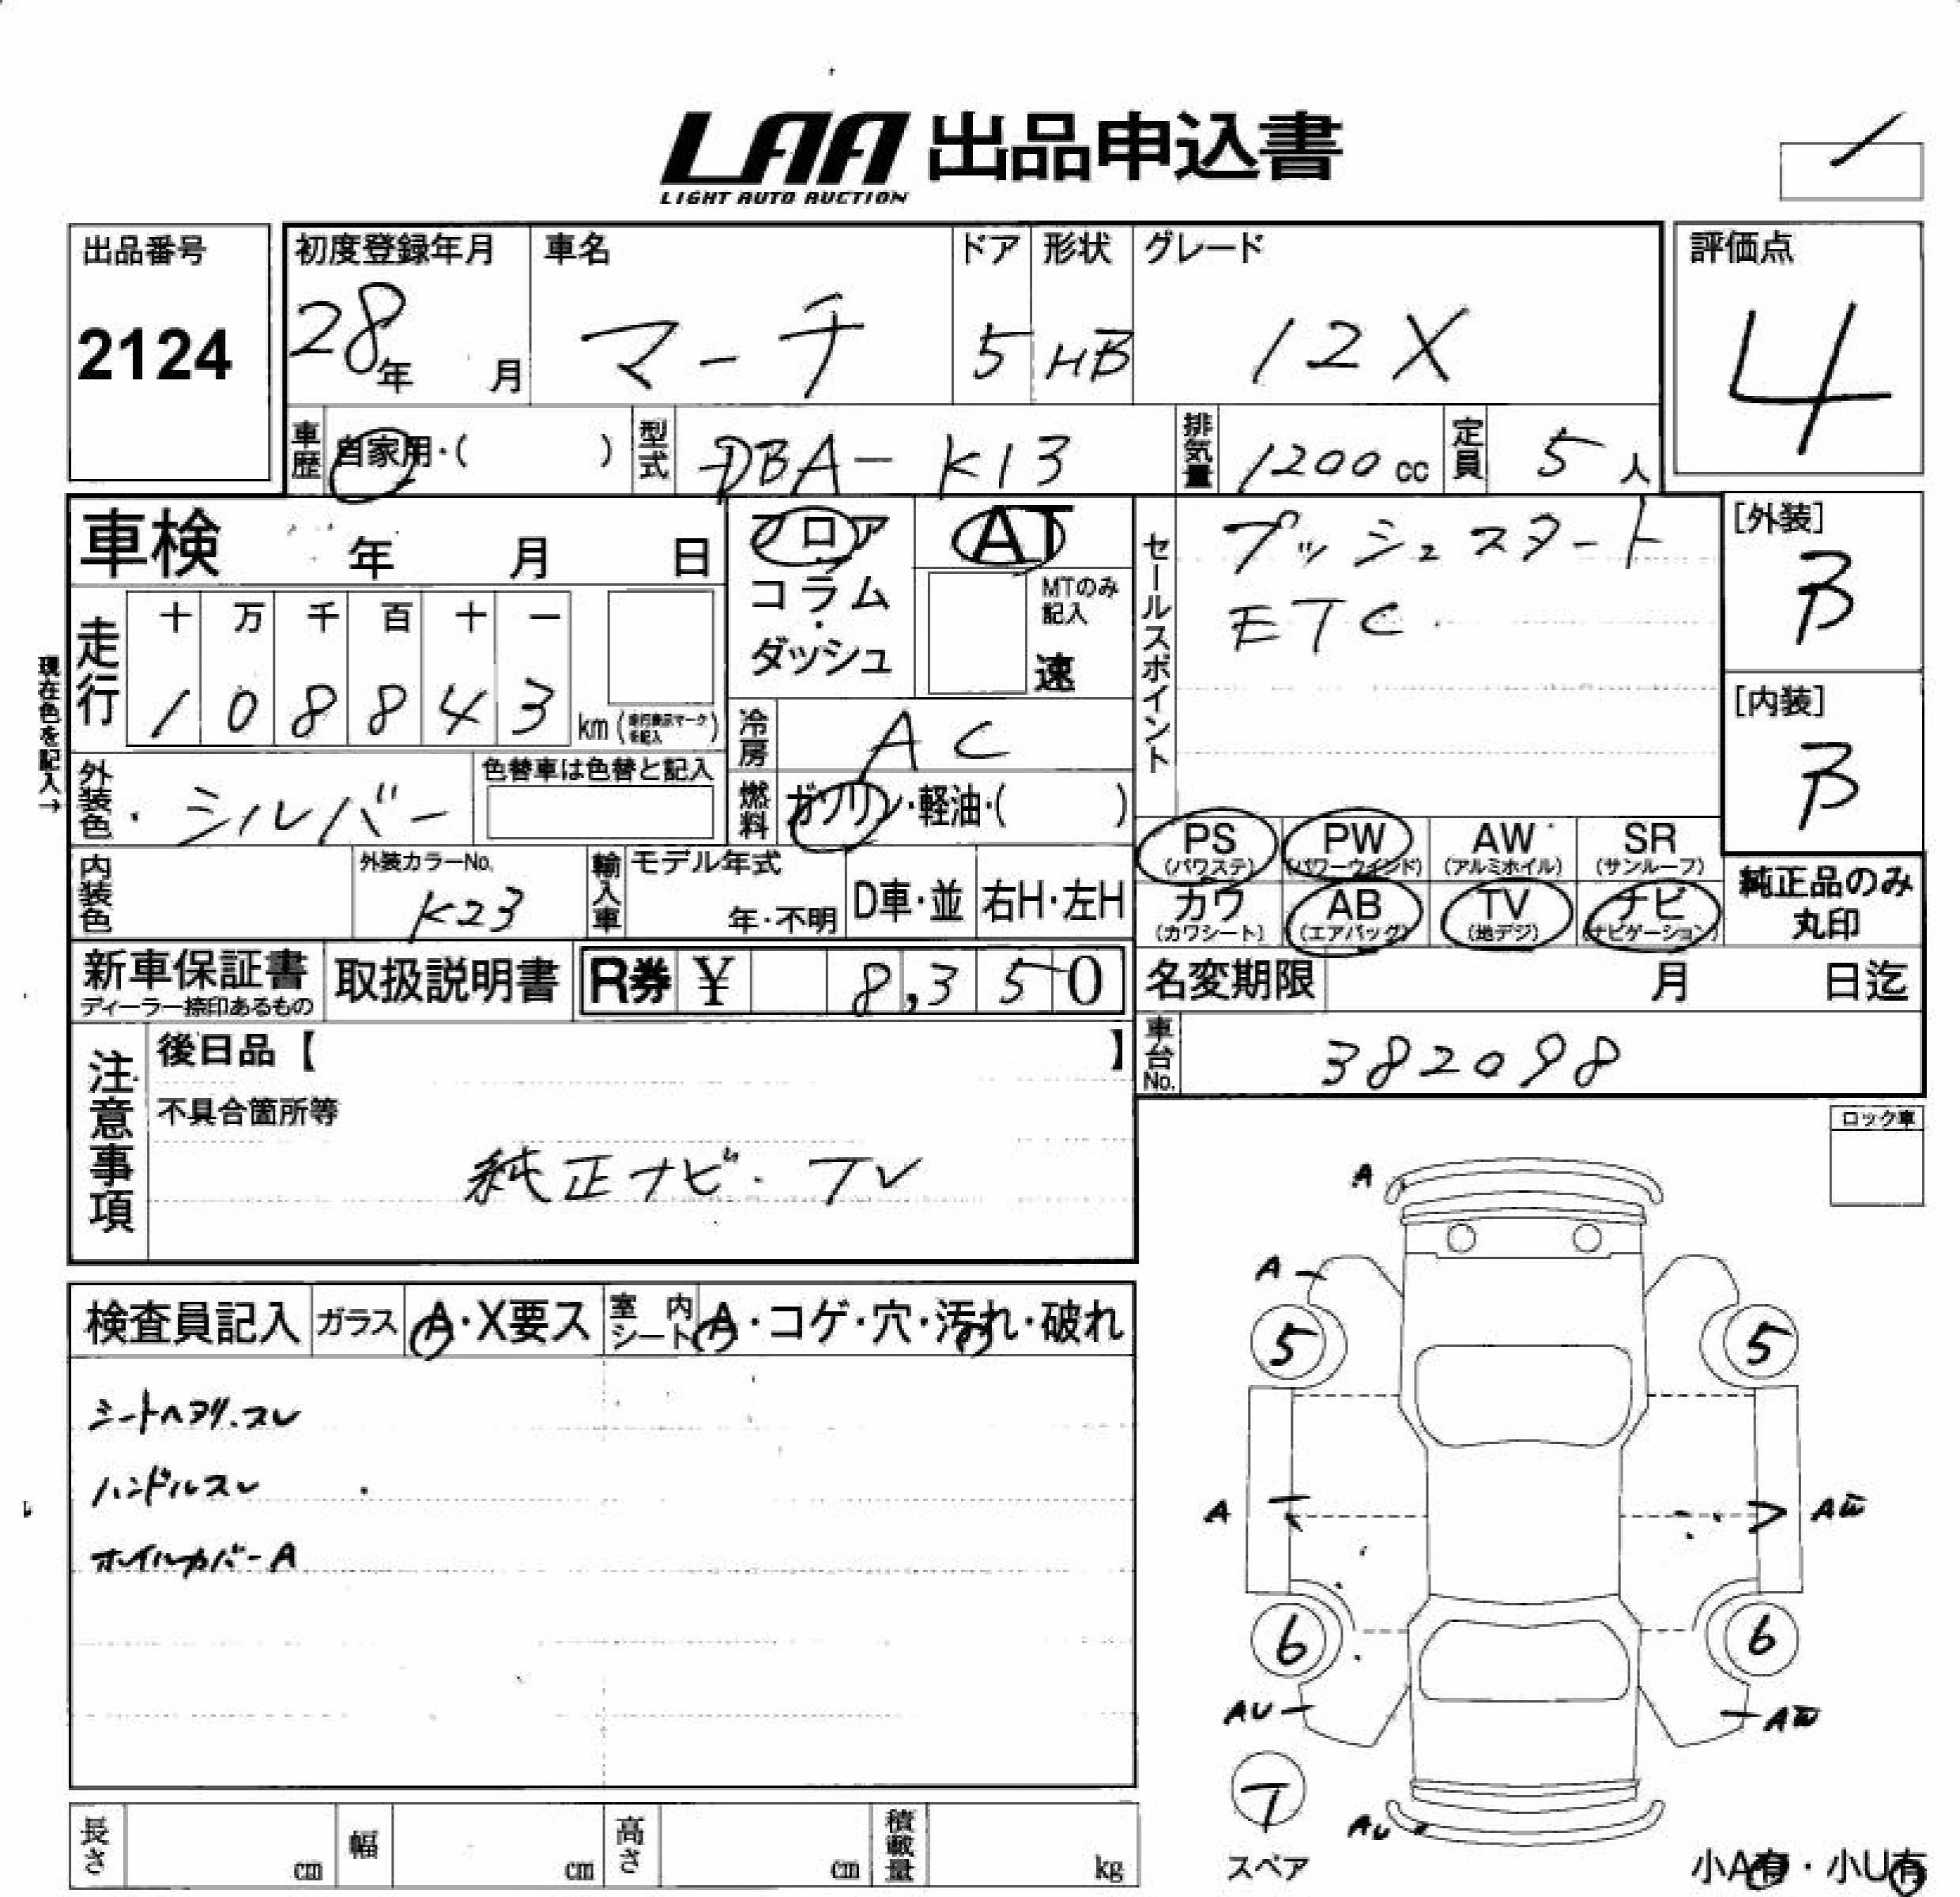 LAA 出品申込書
LIGHT AUTO AUCTION
出品番号
2124
初度登録年月
28年 月
車名
マーチ
ドア
5
形状
HB
グレード
12X
評価点
4
車歴
自家用・( )
型式
DBA-K13
排気量
1200cc
定員
5人
車検 年 月 日
フロア・コラム・ダッシュ
AT
MTのみ記入
速
セールスポイント
プッシュスタート
ETC
[外装]
B
[内装]
B
現在色を記入→
走行
十 万 千 百 十 一
1 0 8 8 4 3 km
冷房
AC
外装色
シルバー
色替車は色替と記入
燃料
ガソリン・軽油・( )
PS (パワステ)
PW (パワーウインド)
AW (アルミホイル)
SR (サンルーフ)
カワ (カワシート)
AB (エアバッグ)
TV (地デジ)
ナビ (ナビゲーション)
純正品のみ丸印
内装色
外装カラーNo.
K23
輸入車
モデル年式
年・不明
D車・並
右H・左H
新車保証書
ディーラー捺印あるもの
取扱説明書
R券 ¥ 8,350
名変期限 月 日迄
車台No.
382098
注意事項
後日品【 】
不具合箇所等
純正ナビ・TV
ロック車
検査員記入
ガラス
A・X要ス
室内シート
A・コゲ・穴・汚れ・破れ
シートヘタリ.スレ
ハンドルスレ
ホイルカバーA
A
A
5
5
A
6
6
AU
AU
T
スペア
長さ cm
幅 cm
高さ cm
積載量 kg
小A有・小U有